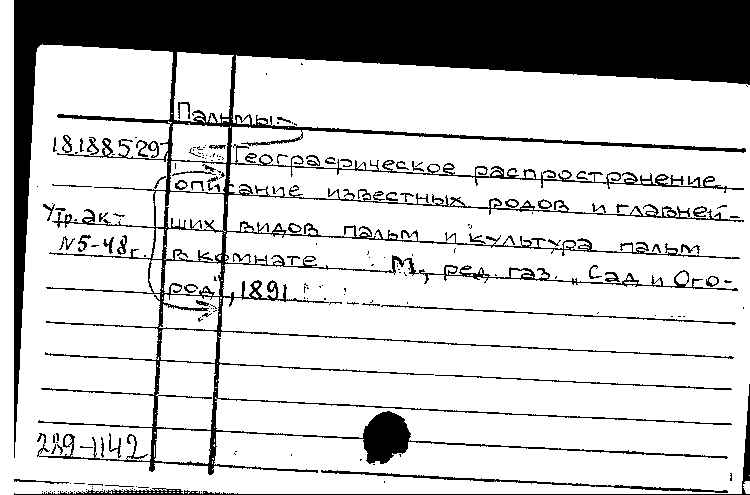 Пальмы.
18.188.5.297 Географическое распространение,
описание известных родов и главней-
Утр. акт ших видов пальм и культура пальм
N5-48г. в комнате. М., ред. газ. „Сад и Ого-
род", 1891
289-1142